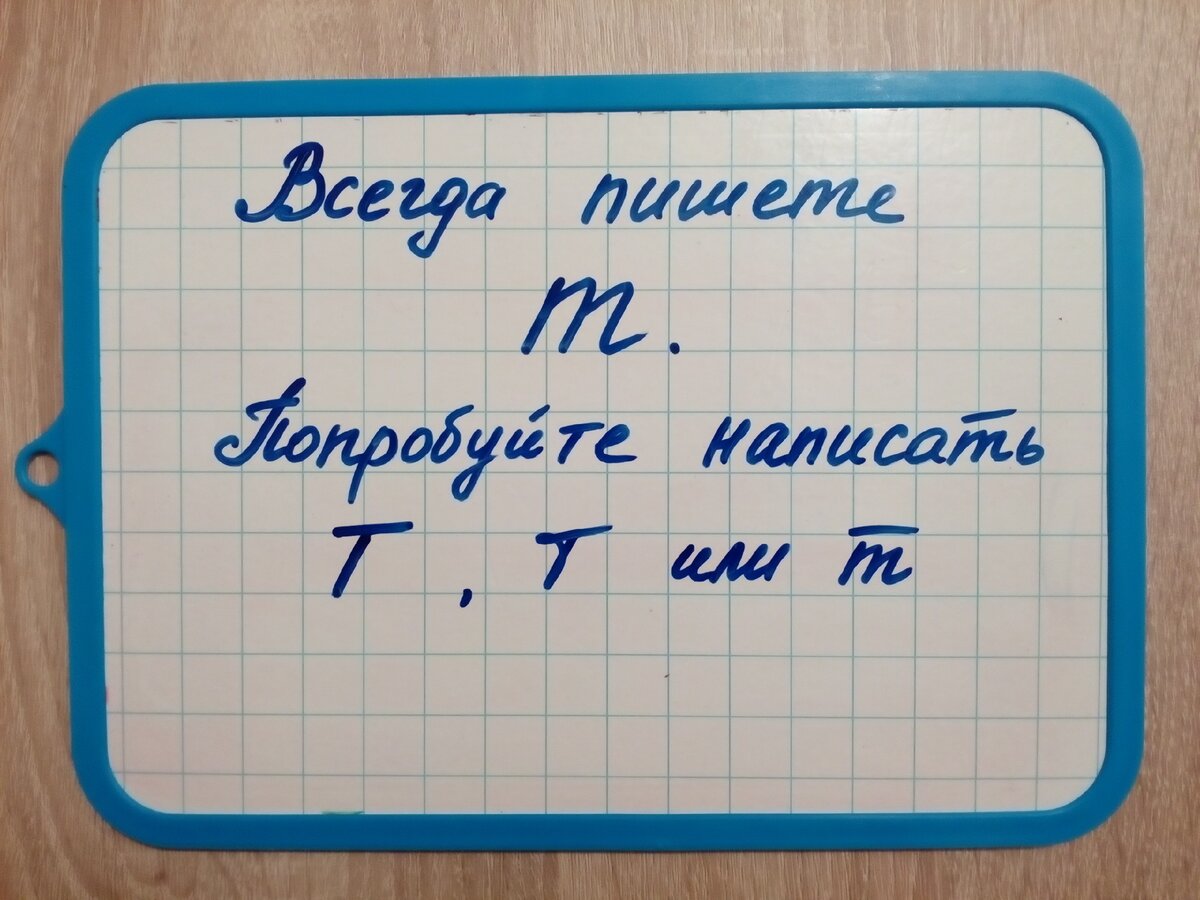 Всегда пишете
т.
Попробуйте написать
Т, Т или т